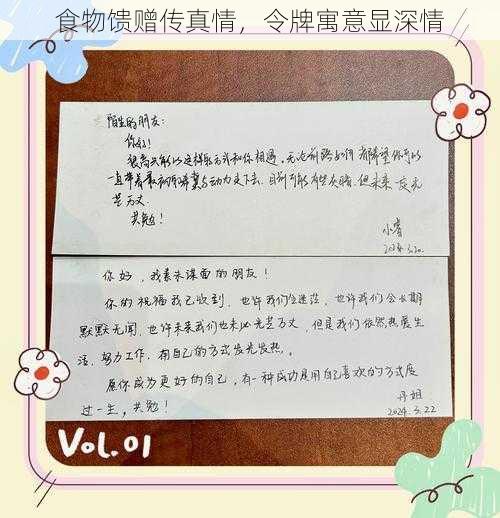 食物馈赠传真情，令牌寓意显深情
陌生的朋友：
你好！
很高兴能以这样的方式和你相遇，无论前路如何 都希望你可以
一直带着最初的 与动力走下去，目前可能有些灰暗，但未来一定光
芒万丈
共勉！
小睿
2024.3.20
你好，我素未谋面的朋友！
你的祝福我已收到，也许我们会迷茫，也许我们会长期
默默无闻，也许未来我们也未必光芒万丈，但是我们依然热爱生
活，努力工作，有自己的方式发光发热。
愿你成为更好的自己，有一种成功是用自己喜欢的方式度
过一生，共勉！
丹姐
2024.3.22
VOL.01